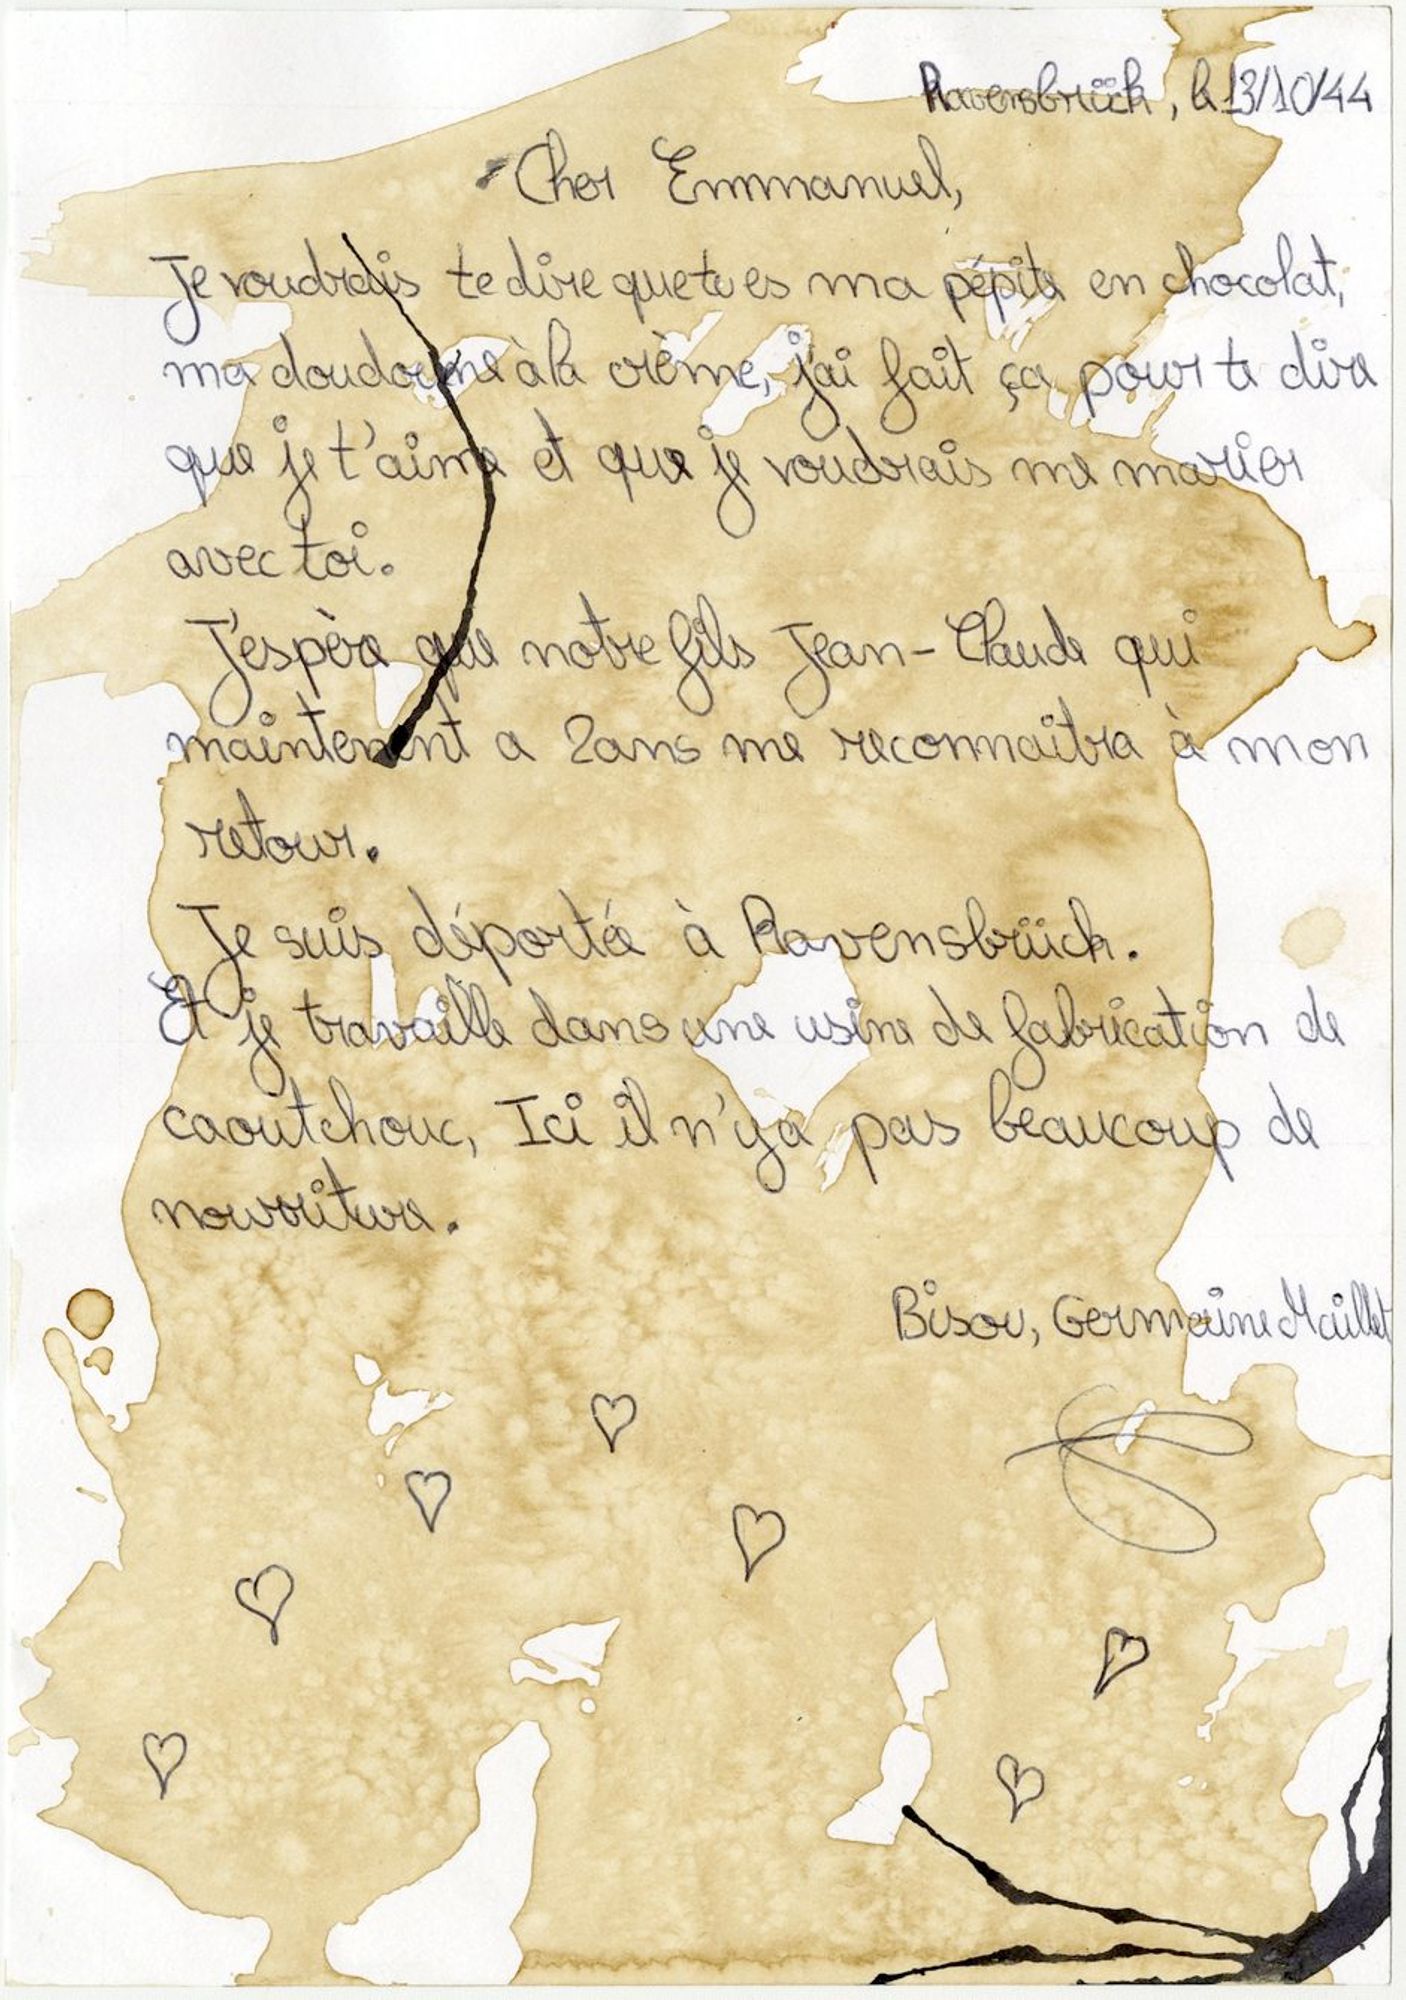 Ravensbrück, le 13/10/44
Cher Emmanuel,
Je voudrais te dire que tu es ma pépite en chocolat,
ma doudoune à la crème, j'ai fait ça pour te dire
que je t'aime et que je voudrais me marier
avec toi.
J'espère que notre fils Jean-Claude qui
maintenant a 2 ans me reconnaitra à mon
retour.
Je suis déportée à Ravensbrück.
Et je travaille dans une usine de fabrication de
caoutchouc, Ici il n'y a pas beaucoup de
nourriture.
Bisou, Germaine Maillet